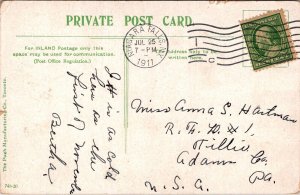 PRIVATE POST CARD.
For INLAND Postage only this
space may be used for communication.
(Post Office Regulation.)
NIAGARA FALLS, N.Y.
JUL 26
7-PM
1911
1
C
Address only to be
written here.
It is as cold
here as the
first of November
Bertha
Miss Anna S. Hartman
R. F. D. #1
Tillie
Adams Co.
Pa.
U.S.A.
The Pugh Manufacturing Co., Toronto.
No. 20